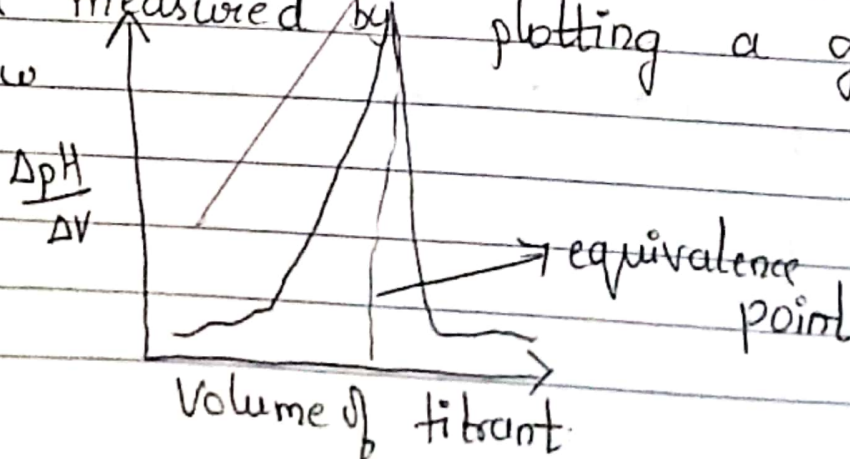 measured by plotting a g
w
ΔpH
ΔV
equivalence
point
Volume of titrant